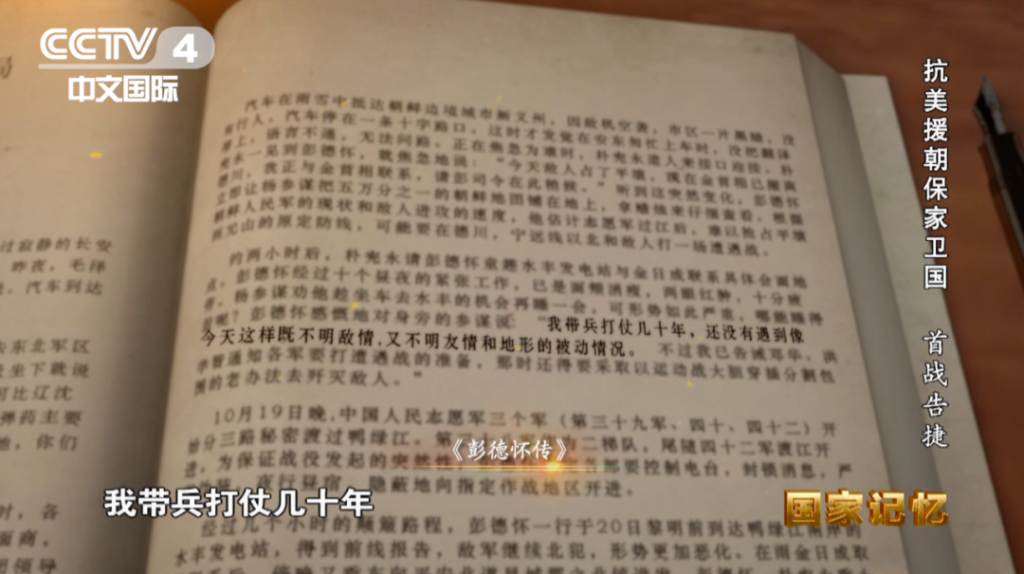 CCTV 4
中文国际
抗美援朝保家卫国 首战告捷
汽车在雨雪中抵达朝鲜边境城市新义州，因敌机空袭，市区一片黑暗，没
有行人。汽车停在一条十字路口，这时才发觉在安东匆忙上车时，没把翻译
带上，语言不通，无法问路。正在焦急为难时，朴宪永遣人来接口迎接。朴
宪永一见到彭德怀，就焦急地说：“今天敌人占了平壤，现在金首相已撤离
德川，我正与金首相联系，请彭司令在此稍候。”听到这突然变化，彭德怀
立即让杨参谋把五万分之一的朝鲜地图铺在地上，拿蜡烛来仔细查看。根据
朝鲜人民军的现状和敌人进攻的速度，他估计志愿军过江后，难以抢占平壤
到元山的原定防线，可能要在德川、宁远线以北和敌人打一场遭遇战。
的两小时后，朴宪永请彭德怀童趣水丰发电站与金日成联系具体会面地
点。彭德怀经过十个昼夜的紧张工作，已是面颊消瘦，两眼红肿，十分疲
劳。杨参谋劝他趁坐车去水丰的机会再睡一会。可形势如此严重，哪能睡得
着呢？彭德怀感慨地对身旁的参谋说：“我带兵打仗几十年，还没有遇到像
今天这样既不明敌情，又不明友情和地形的被动情况。不过我已告诫邓华、洪
学智通知各军要打遭遇战的准备，那时还得要采取以运动战大胆穿插分割包
围的老办法去歼灭敌人。”
10月19日晚，中国人民志愿军三个军（第三十九军、四十、四十二）开
始分三路秘密渡过鸭绿江。第
二梯队，尾随四十二军渡江开
进。为保证战役发起的突然性
要控制电台，封锁消息，严
夜行昼宿，隐蔽地向指定作战地区开进。
经过几个小时的颠簸路程，彭德怀一行于20日黎明前到达鸭绿江南岸的
水丰发电站，得到前线报告，敌军继续北犯，形势更加恶化。在雨金日成取
过寂静的长安
昨夜，毛泽
汽车到达
去东北军区
坐下就说
可比辽沈
弹药主要
他，你们
时，各
面商，
团领导
《彭德怀传》
我带兵打仗几十年
国家记忆